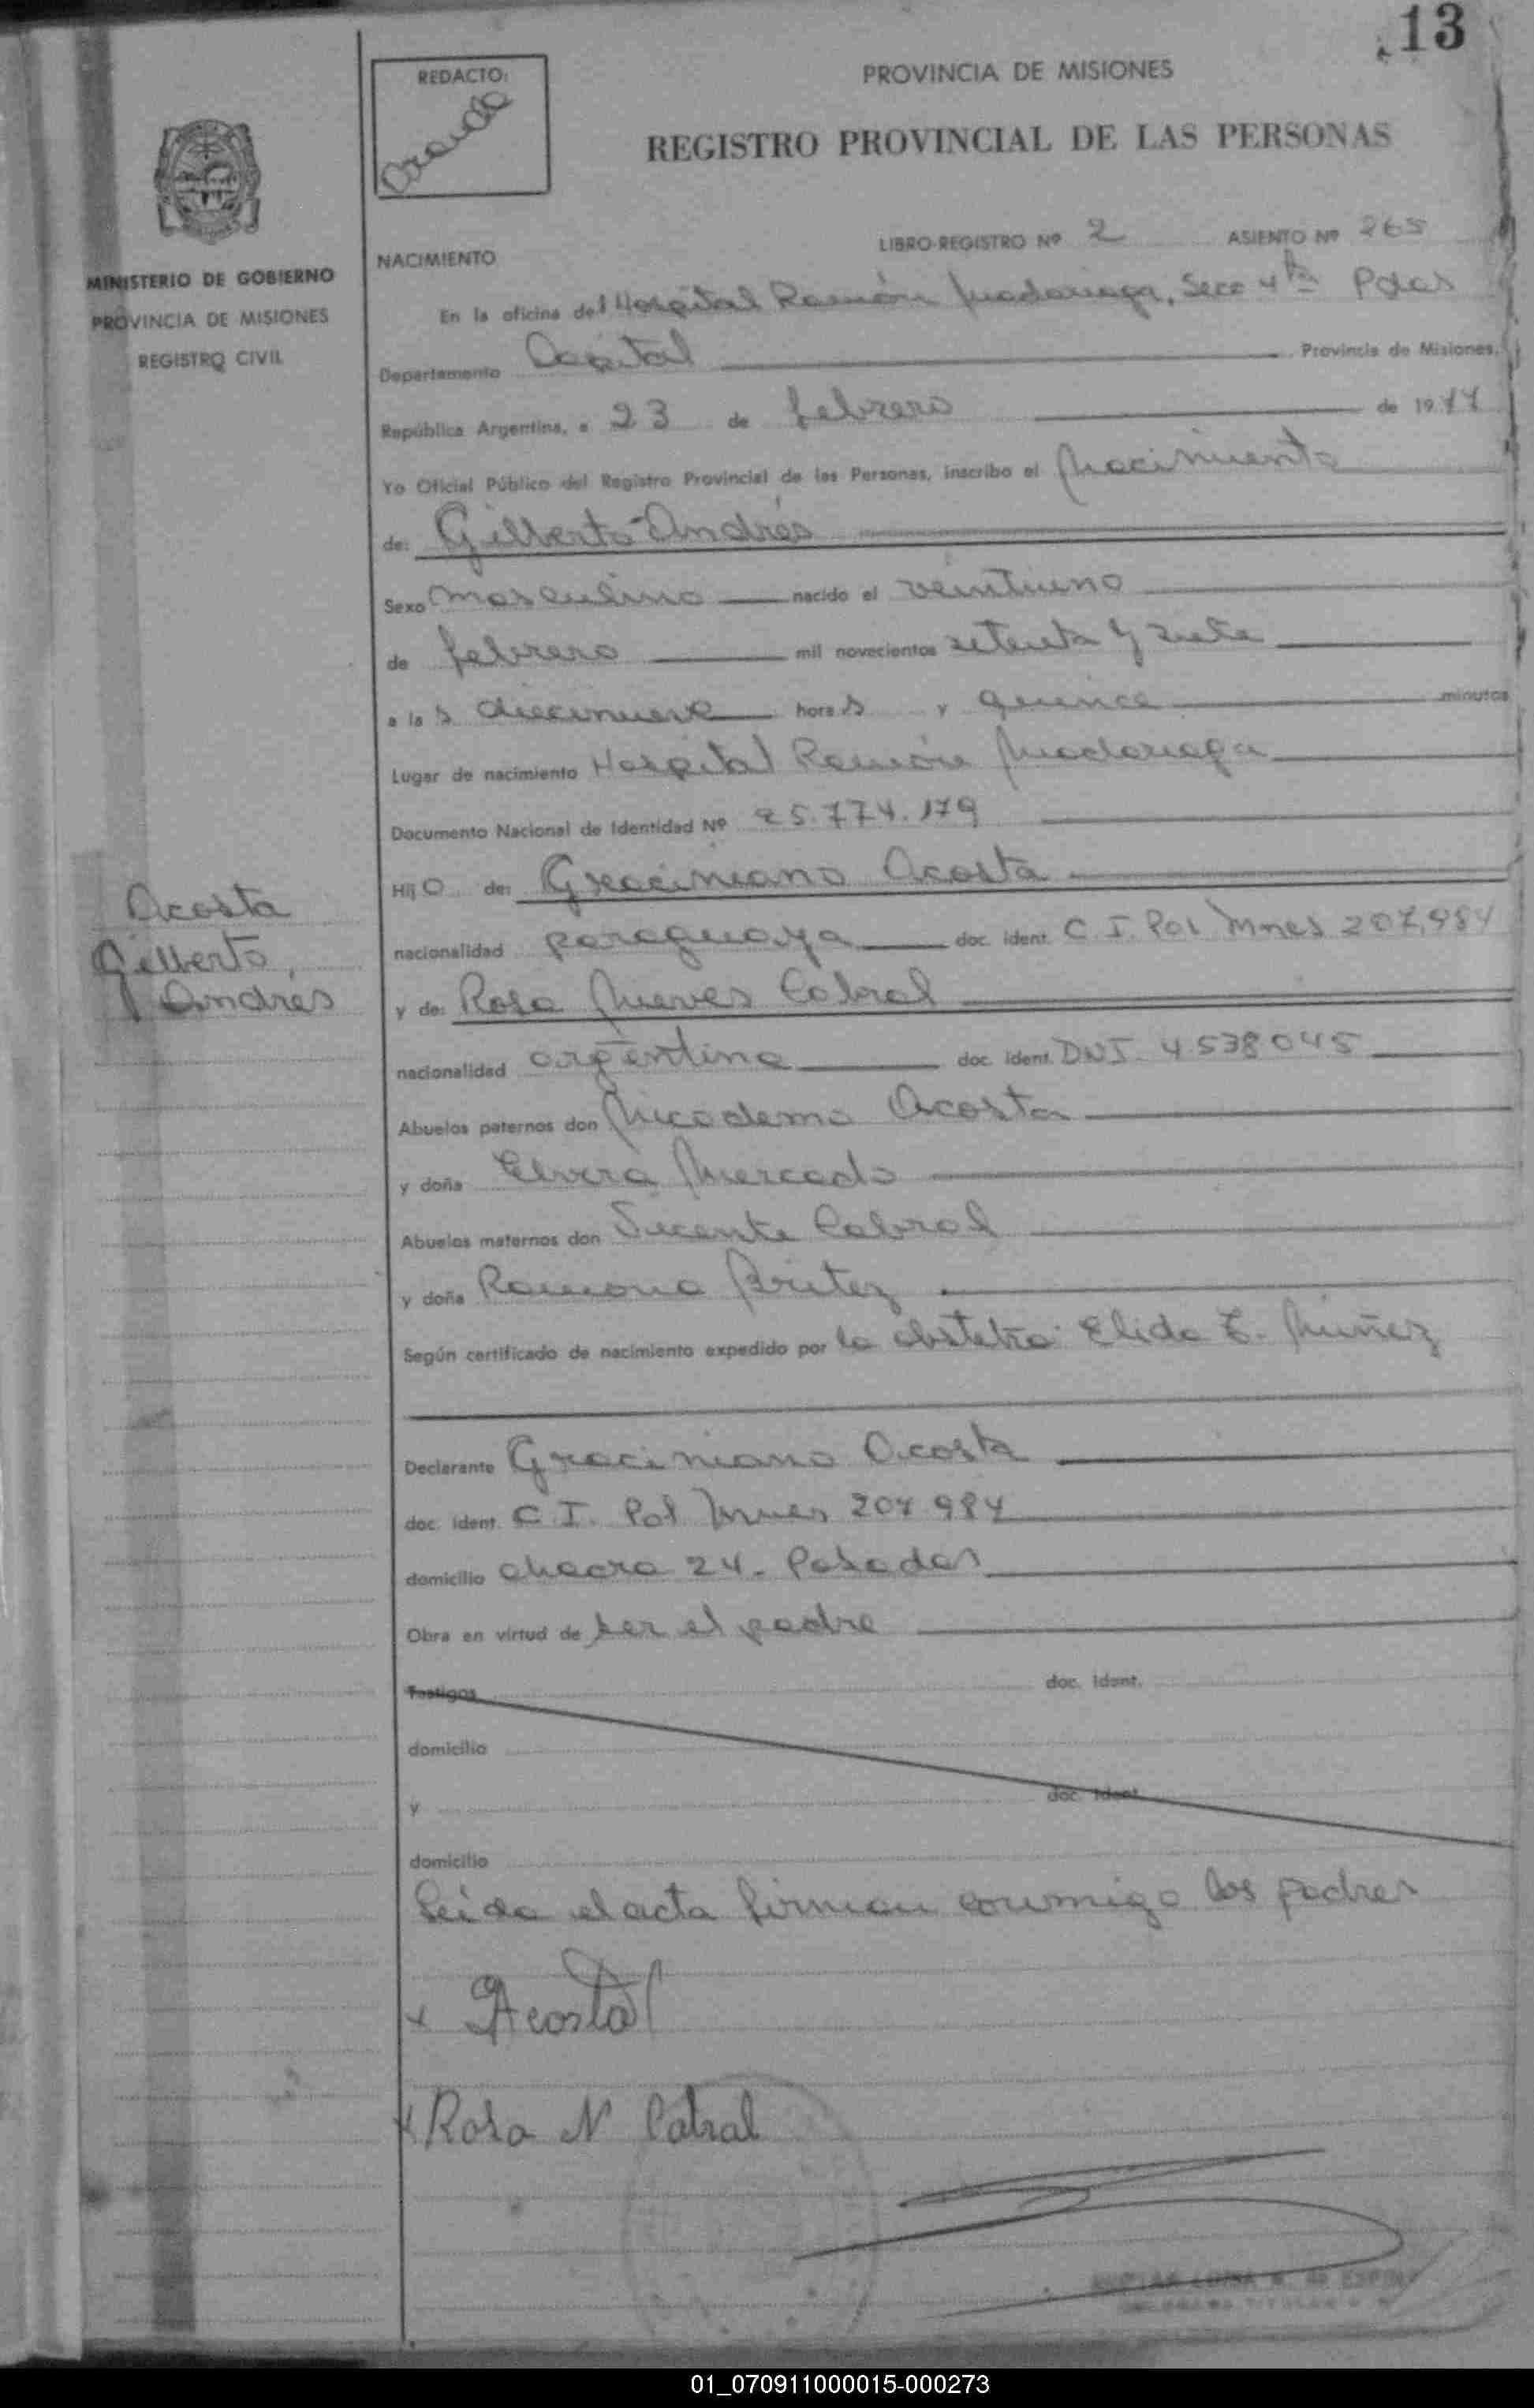 13
REDACTO:
PROVINCIA DE MISIONES
REGISTRO PROVINCIAL DE LAS PERSONAS
LIBRO-REGISTRO Nº 2 ASIENTO Nº 265
NACIMIENTO
MINISTERIO DE GOBIERNO
PROVINCIA DE MISIONES
REGISTRO CIVIL
En la oficina del Hospital Ramón Madariaga, Secc 4ta Pdas
Departamento Capital Provincia de Misiones,
República Argentina, a 23 de febrero de 1977
Yo Oficial Público del Registro Provincial de las Personas, inscribo el Nacimiento
de: Gilberto Andrés
Sexo masculino nacido el veintiuno
de febrero mil novecientos setenta y siete
a la s diecinueve hora s y quince minutos
Lugar de nacimiento Hospital Ramón Madariaga
Documento Nacional de Identidad Nº 25.774.179
Hij o de: Graciniano Acosta
Acosta
Gilberto,
Andrés
nacionalidad paraguaya doc. ident. C. I. Pol Mnes 207.984
y de: Rosa Nieves Cabral
nacionalidad argentina doc. ident. DNI. 4.538045
Abuelos paternos don Nicodemo Acosta
y doña Elvira Mercado
Abuelos maternos don Cabral
y doña Ramona Britez
Según certificado de nacimiento expedido por la obstetra: Elida E. Núñez
Declarante Graciniano Acosta
doc. ident. C. I. Pol Mnes 207 984
domicilio chacra 24. Posadas
Obra en virtud de ser el padre
Testigos doc. ident.
domicilio
y doc. ident.
domicilio
Leida el acta firman conmigo los padres
x Acosta
x Rosa N Cabral
01_070911000015-000273